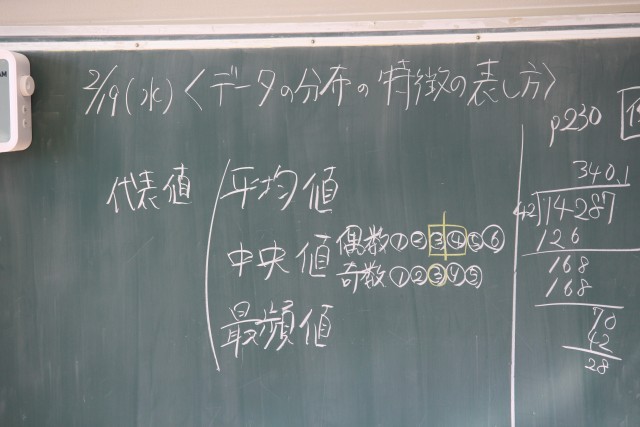 2/19(水)〈データの分布の特徴の表し方〉
代表値
平均値
中央値 偶数①②③④⑤⑥
奇数①②③④⑤
最頻値
p230
340.1
42)14287
126
168
168
70
42
28